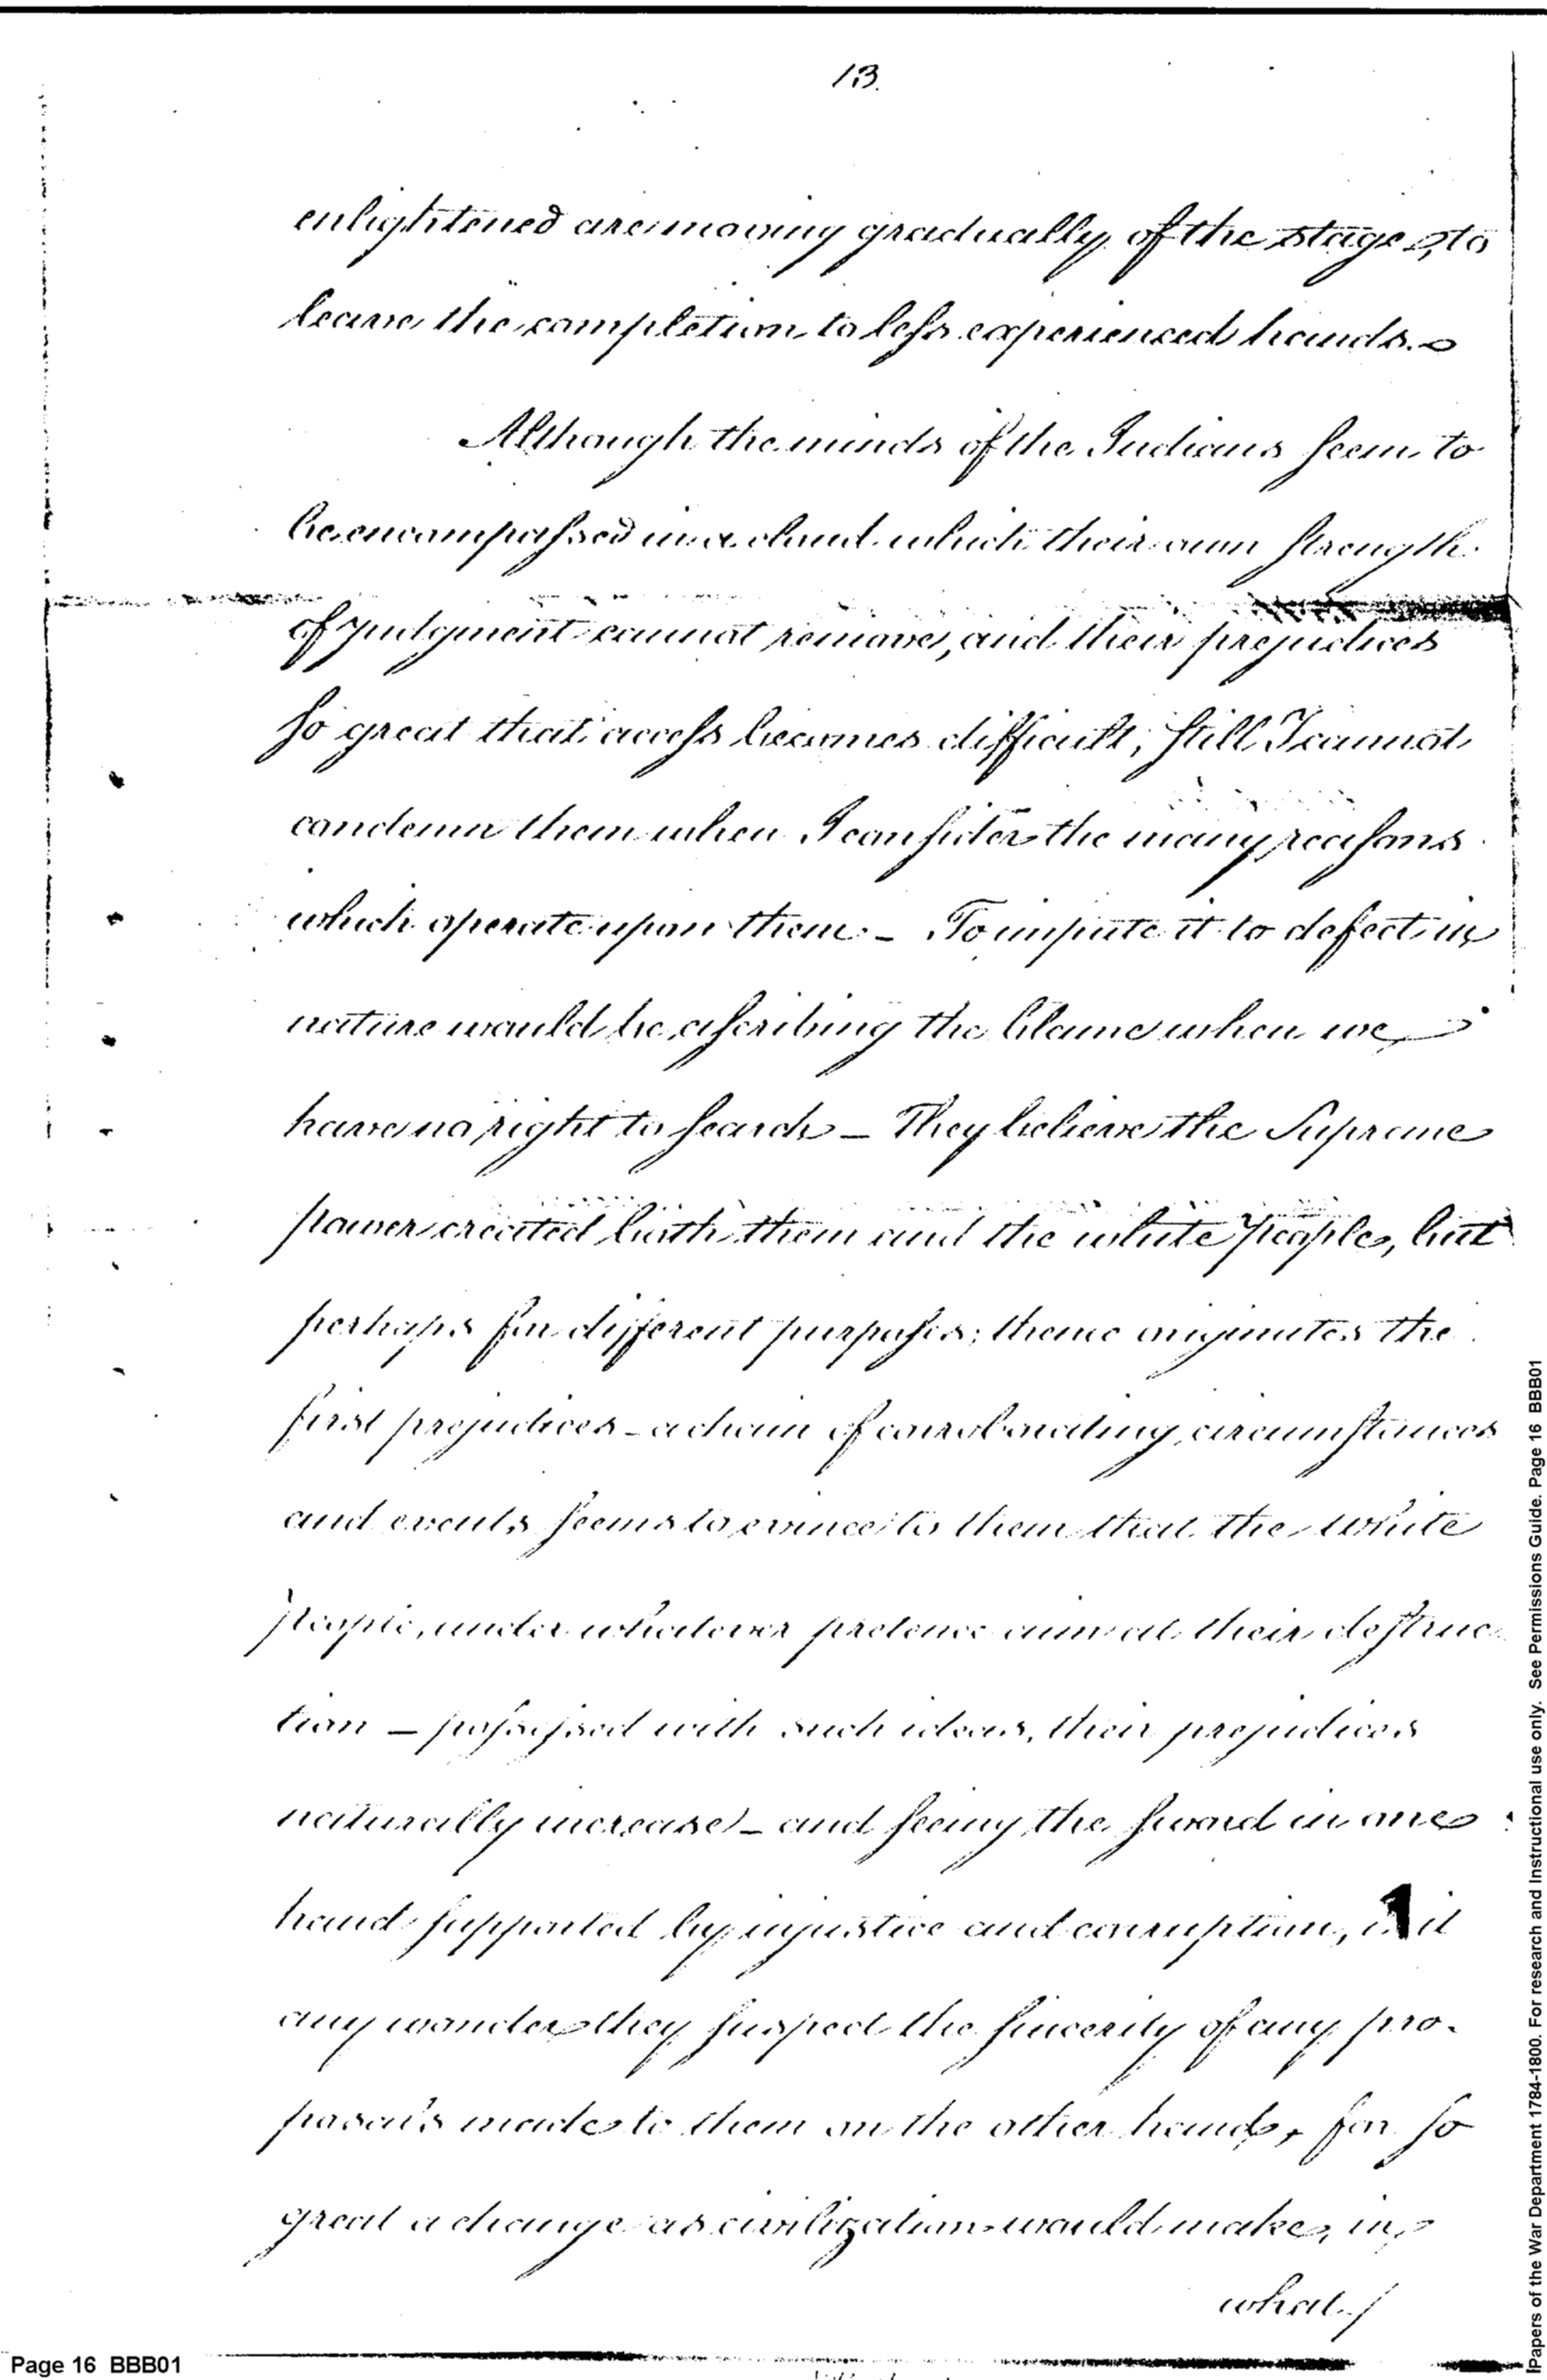 13.
enlightened are moving gradually of the stage, to
leave the completion to less experienced hands.
Although the minds of the Indians seem to
be encompassed in a cloud which their own strength
of judgment cannot remove, and their prejudices
so great that access becomes difficult; still I cannot
condemn them when I consider the many reasons
which operate upon them - To impute it to defect in
nature would be ascribing the blame when we
have no right to search - They believe the Supreme
power created both them and the white people, but
perhaps for different purposes; thence originates the
first prejudices - a chain of corroborating circumstances
and events seems to evince to them that the white
people, under whatever pretence aim at their destruc
tion - possessed with such ideas, their prejudices
naturally increase - and seeing the sword in one
hand supported by injustice and corruption, is it
any wonder they suspect the sincerity of any pro-
posals made to them on the other hand, for so
great a change as civilization would make, in
what /
Page 16 BBB01
Papers of the War Department 1784-1800. For research and Instructional use only. See Permissions Guide. Page 16 BBB01